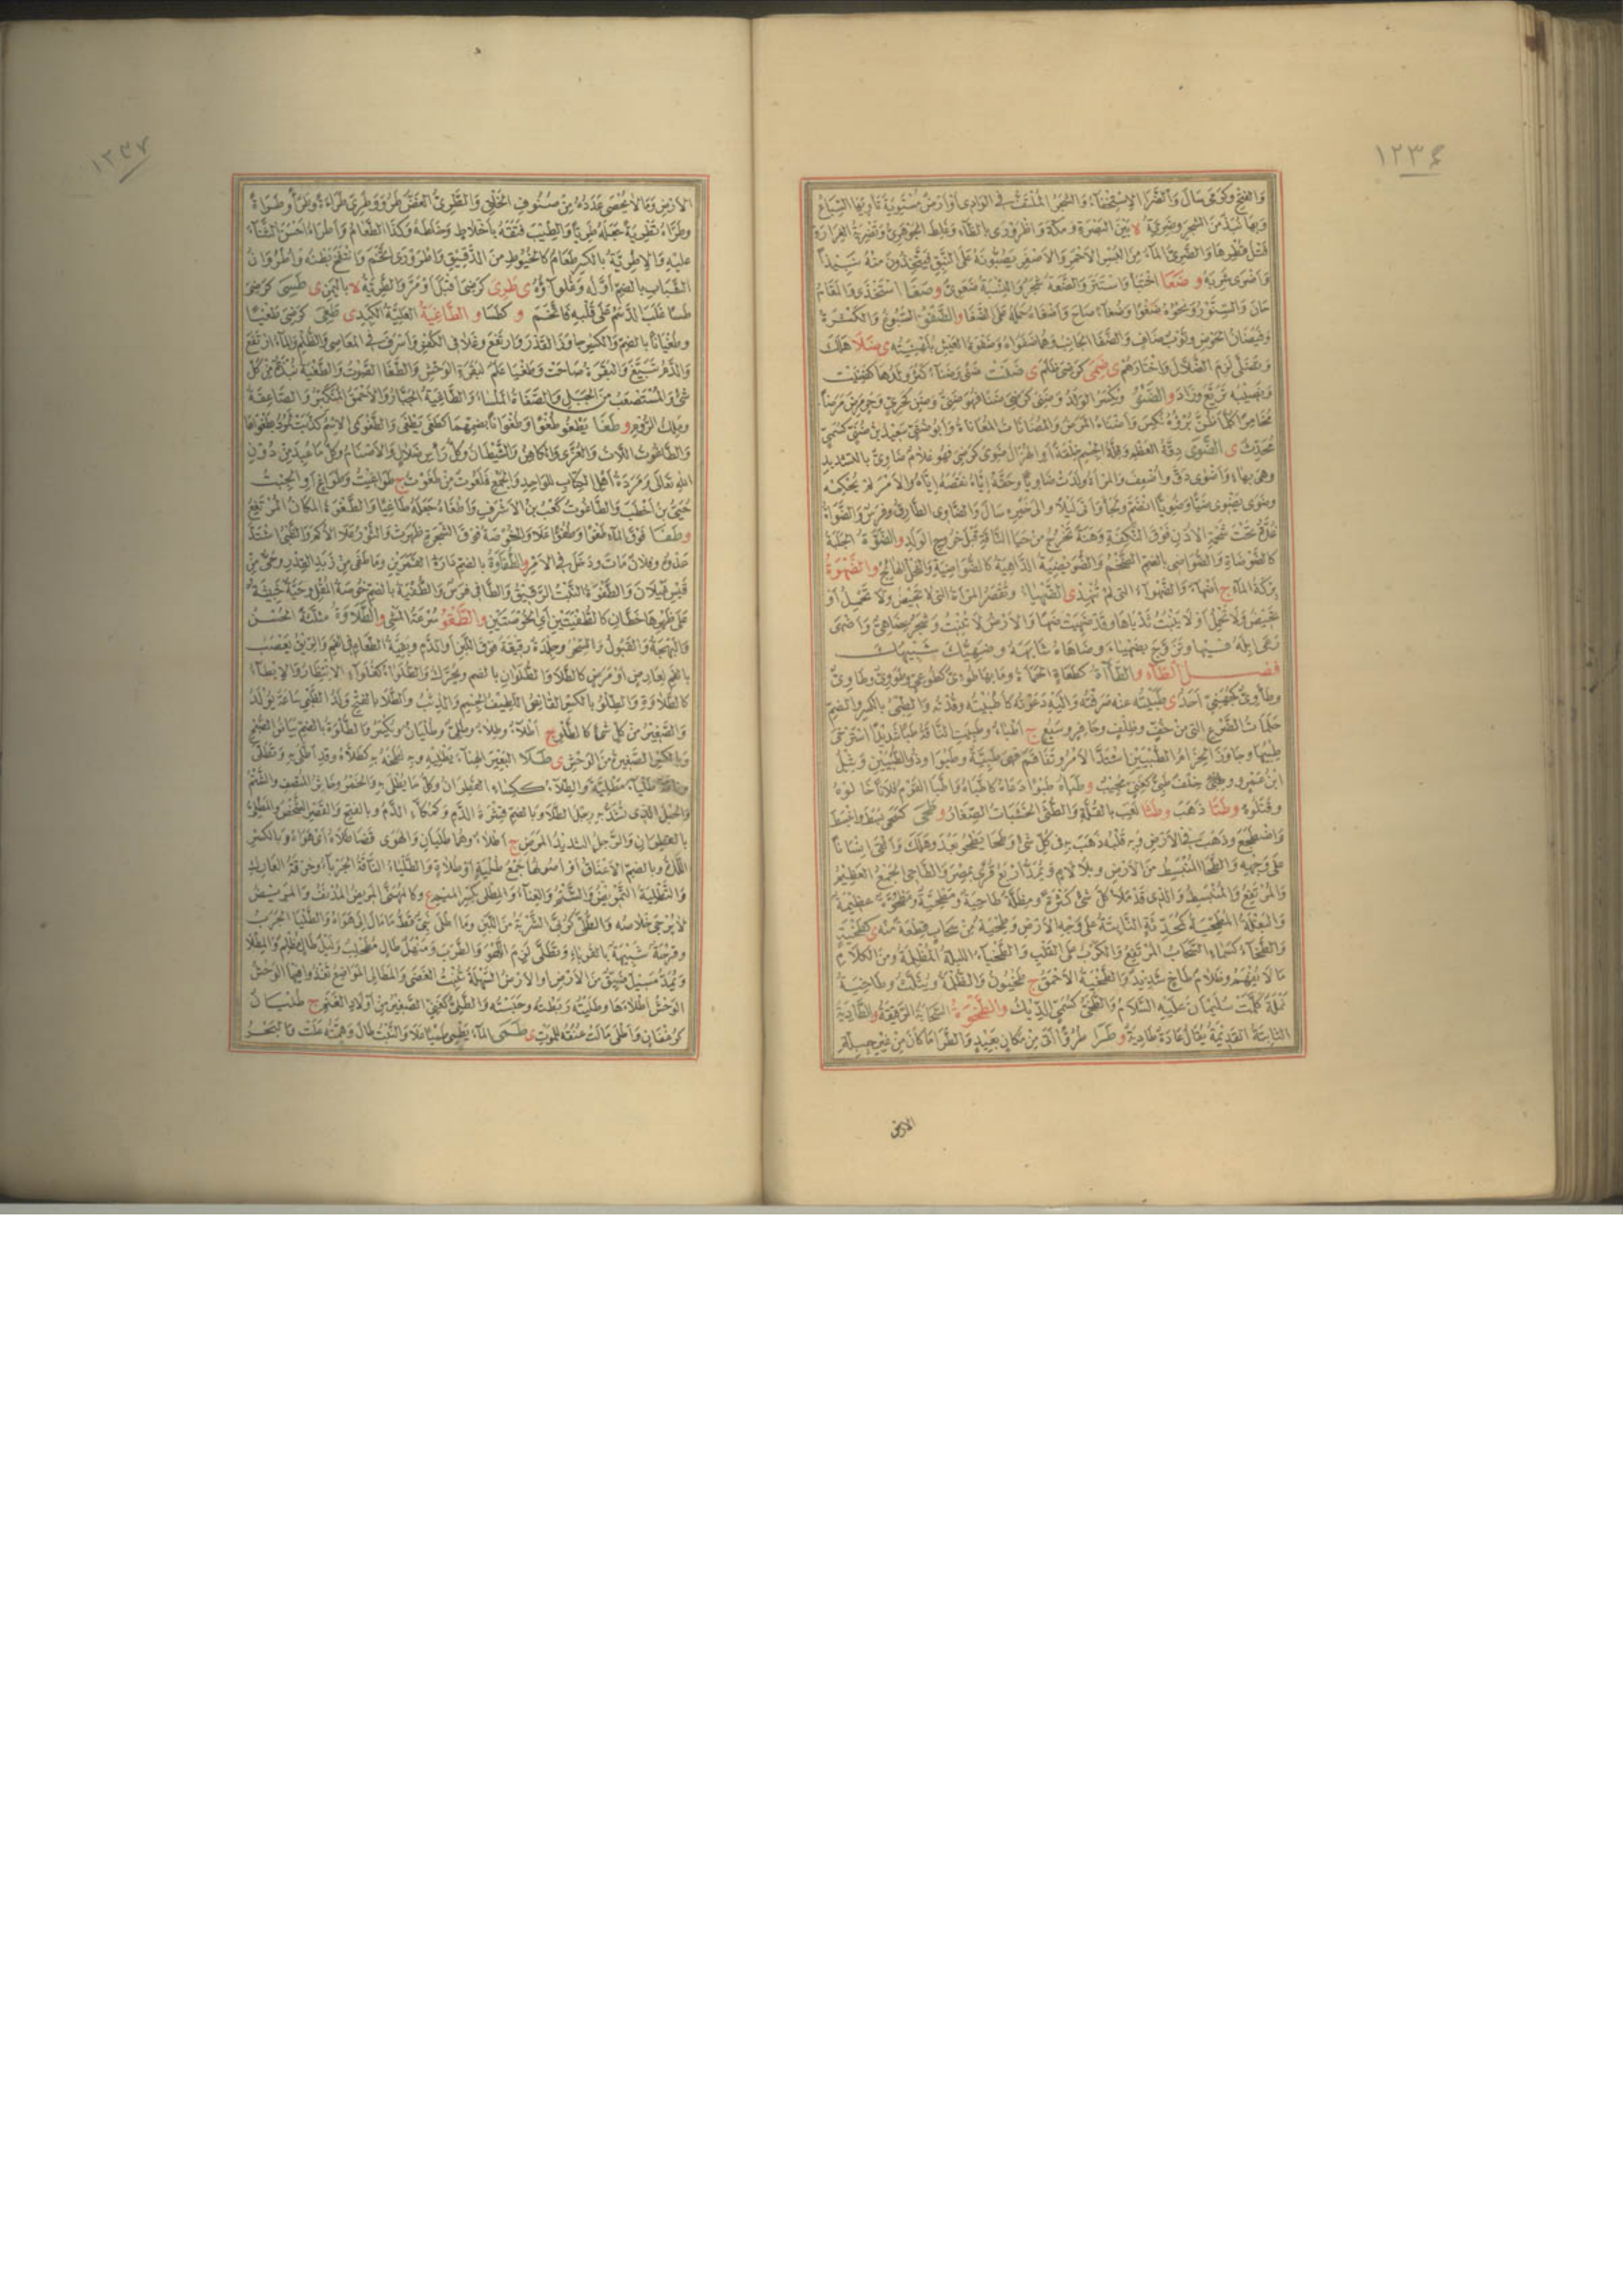 ١٢٣٦
والفتح وكرمى سال والضرا الاستخفاء والشجر الملتف في الوادى أو أرض مستوية تأويها السباع
وبها نبذ من الشجر وضرية لا بين البصرة ومكة واظرورى بالظاء وغلط الجوهرى وتضرية الغرارة
فتل قطرها والضرى الماء من البسر الأحمر والأصفر يصبونه على النبق فيتخذون منه
وأضرى شربه و ضعا اختبأ واستتر والضعة شجر والنسبة ضعوى و ضغا استخذى والمقام
خان والسنور ونحوه ضغوا وضغاء صاح وأضغاه حمله على الضغا و الضفو السبوغ والكثرة
وفيضان الحوض وثوب ضاف والضفا الجانب وهما ضفواه وضفوة العيش بلهنيته ى ضلا هلك
وتضلى لزم الضلال واختارهم ى ضمى كرضى ظلم ى ضنت ضنى وضناء كثر ولدها كضنيت
محدث ى الضوى دقة العظم وقلة الجسم خلقة أو الهزال ضوى كرضى فهو غلام ضاوى بالتشديد
وهى بهاء وأضوى دق وأضعف والمرأة ولدت ضاويا وحقه إياه نقصه إياه والأمر لم يحكمه
وضوى يضوى ضيا وضويا انضم ولجأ وأتى ليلا والى خيره سال والضاوى الطارق وفرس والضواة
غدة تحت شحمة الأذن فوق النكفة وهنة تخرج من حيا الناقة قبل خروج الولد و الضوة الجلبة
كالضوضاة والضواضى بالضم الضخم والضوضية الداهية كالضواضية والفحل الهائج و الضهوة
بركة الماء ج أضهاء والضهواء التى لم تنهد ى الضهياء وتقصر المرأة التى لا تحيض ولا تحمل أو
تحيض ولا تحمل أو لا ينبت ثدياها وقد ضهيت ضها والأرض لا تنبت وشجر عضاهى وأضهى
رعى إبله فيها وتزوج بضهياء وضاهاه شابهه وضهيك شبيهك
فصل الطاء و الطاءة كطعاة الحمأة وما بها طوئى كطوعى وطووى وطاوى
وطأوى كجهنى أحد ى طبيته عنه صرفته واليه دعوته كاطبيته وقدته والطبى بالكسر والضم
حلمات الضرع التى من خف وظلف وحافر وسبع ج أطباء وطبيت الناقة طبا شديدا استرخى
طبيها وجاوز الحزام الطبيين اشتد الأمر وتفاقم فهى طبية وطبوا وذو الطبيين وثيل
ابن عمرو وخلف طبى كغنى مجيب و طباه طبوا دعاه كاطباه واطبا القوم فلانا خالوه
وقتلوه و طتا ذهب و طثا لعب بالقلة والطثى الخشبات الصغار و طحى كسعى بسط وانبسط
واضطجع وذهب في الأرض وبه قلبه ذهب به في كل شئ و طحا يطحو بعد وهلك وألقى إنسانا
على وجهه والطحا المنبسط من الأرض وبلا لام ويمد أربع قرى بمصر والطاحى الجمع العظيم
والمرتفع والمنبسط والذى قد ملأ كل شئ كثرة ومظلة طاحية ومطحية ومطحوة عظيمة
والبقلة المطحية كمحدثة النابتة على وجه الأرض وطحية من سحاب قطعة منه ى كطخية
والطخاء كسماء السحاب المرتفع والكرب على القلب والطخياء الليلة المظلمة ومن الكلام
ما لا يفهم وظلام طاخ شديد والطخية الأحمق ج طخيون والظلمة ويثلث وطاخية
نملة كلمت سليمان عليه السلام والطخى كسمى الديك و الطخوة السحابة الرقيقة و الطادية
الثابتة القديمة يقال عادة طادية و طرا طروا أتى من مكان بعيد والطرا ما كان من غير جبلة
الأرض
١٢٣٧
الأرض وما لا يحصى عدده من صنوف الخلق والطرى الغض طرو وطرى طراوة وطراء وطراة
وطراه تطرية جعله طريا والطيب فتقه بأخلاط وخلطه وكذا الطعام وأطراه أحسن الثناء
عليه والإطرية بالكسر طعام كالخيوط من الدقيق واطرورى اتخم وانتفخ بطنه وأطروان
الشباب بالضم أوله وغلواؤه ى طرى كرضى أقبل أو مر والطرية لا باليمن ى طسى كرضى
طسا غلب الدسم على قلبه فاتخم و كطسا و الطاعية الغلية الكبد ى طغى كرضى طغيا
وطغيانا بالضم والكسر جاوز القدر وارتفع وغلا في الكفر وأسرف في المعاصى والظلم والماء ارتفع
والدم تبيغ والبقرة صاحت وطغيا علم لبقرة الوحش والطغا الصوت والطغية نبذة من كل
شئ والمستصعب من الجبل والصفاة الملساء والطاغية الجبار والأحمق المتكبر والصاعقة
وملك الروم و طغا يطغو طغوا وطغوانا بضمهما كطغى يطغى والطغوى الاسم كذبت ثمود بطغواها
والطاغوت اللات والعزى والكاهن والشيطان وكل رأس ضلال والأصنام وكل ما عبد من دون
الله تعالى ومردة أهل الكتاب للواحد والجمع فلعوت من طغوت ج طواغيت وطواغ أو الجبت
حيى بن أخطب والطاغوت كعب بن الأشرف وأطغاه جعله طاغيا والطغوة المكان المرتفع
و طفا فوق الماء طفوا وطفوا علا والخوصة فوق الشجرة ظهرت والثور علا الأكم والظبى اشتد
عدوه وفلان مات ودخل في الأمر و الطفاوة بالضم دارة القمرين وما طفى من زبد القدر وحى من
قيس عيلان والطفوة النبت الرقيق والطافى فرس والطفية بالضم خوصة المقل وحية خبيثة
على ظهرها خطان كالطفيتين أى الخوصتين و الطقو سرعة المشى و الطلاوة مثلثة الحسن
والبهجة والقبول والسحر وجلدة رقيقة فوق اللبن أو الدم وبقية الطعام في الفم والريق يعصب
بالفم لعارض أو مرض كالطلا والطلوان بالضم ويحرك والطلواء كغلواء الانتظار والابطاء
كالطلاوة والطلو بالكسر القانص اللطيف الجسم والذئب والطلا بالفتح ولد الظبى ساعة يولد
والصغير من كل شئ كالطلو ج أطلاء وطلاء وطلى وطليان ويكسر والطلوة بالضم بياض الصبح
وبالكسر الصغير من الوحش ى طلا البعير الهناء يطليه وبه لطخه به كطلاه وقد اطلى به وتطلى
وناقة طلياء مطلية والطلاء ككساء القطران وكل ما يطلى به والخمر وخاثر المنصف والشتم
والحبل الذى تشد به رجل الطلا وبالضم قشرة الدم وكمكاء الدم وبالفتح والقصر الشخص والمطلى
بالقطران والرجل الشديد المرض ج أطلاء وهما طليان والهوى قضا طلاه أى هواه وبالكسر
اللذة وبالضم الأعناق أو أصولها جمع طلية أو طلاة والطلياء الناقة الجرباء وخرقة العارك
والتطلية التمريض والشتم والغناء
لا يرجى خلاصه والطلى كربى الشربة من اللبن وما أطلى نبى قط ما مال إلى هواه والطليا الجرب
وقرحة شبيهة بالقوباء وتطلى لزم اللهو والطرب ومنهل طال مطحلب وليل طال مظلم والمطلا
ويمد مسيل ضيق من الأرض أو الأرض السهلة تنبت الغضى والمطالى المواضع تغذو فيها الوحش
الوحش أطلاءها وطليته ربطته وحبسته والطلى كغنى الصغير من أولاد الغنم ج طليان
كرغفان وأطلى مالت عنقه للموت ى طمى الماء يطمى طميا علا والنبت طال وهمته علت والبحر